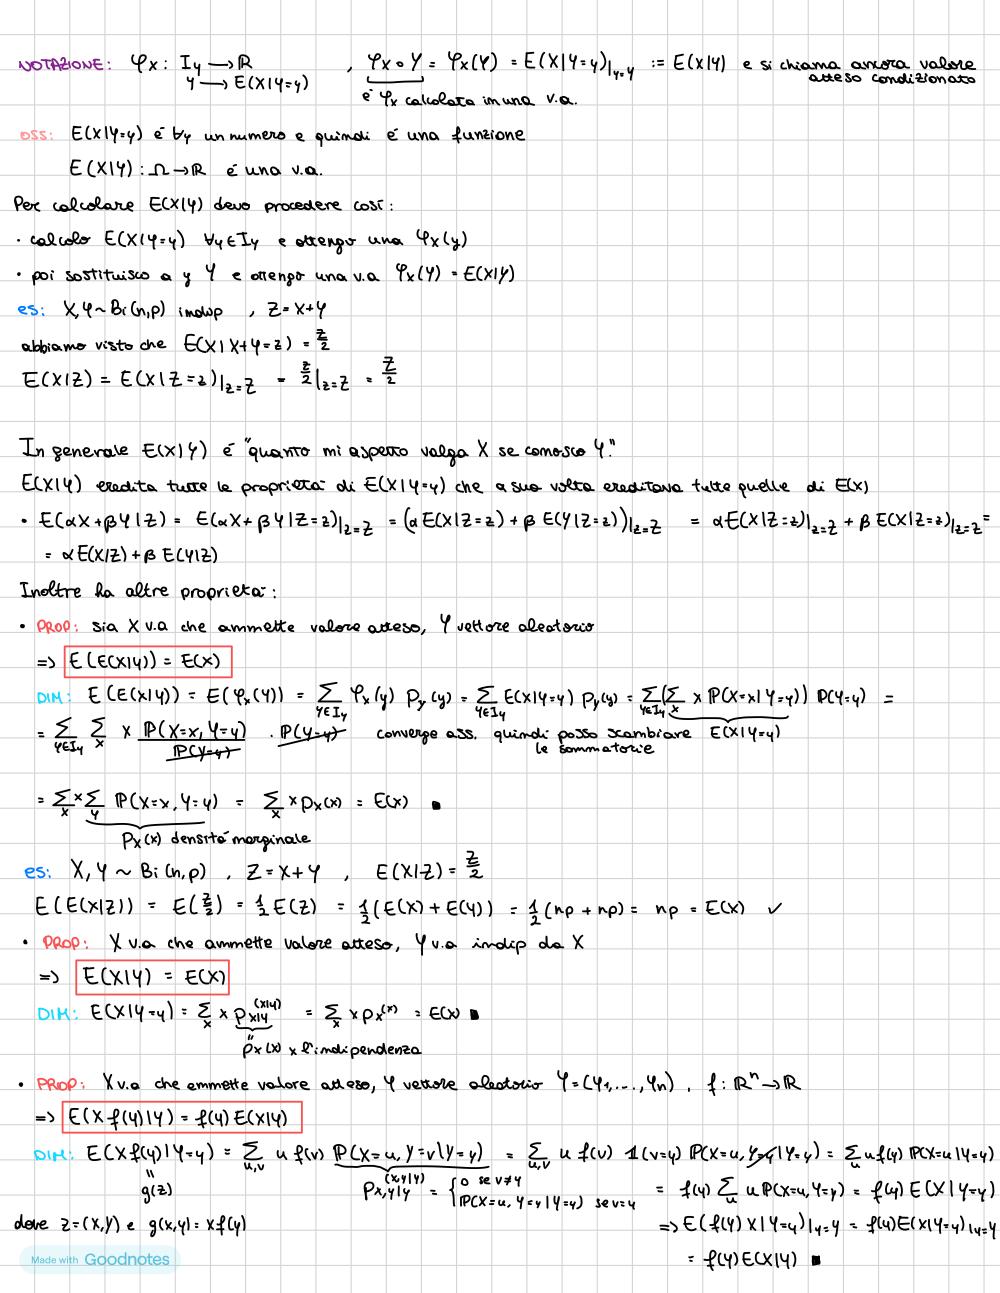 NOTAZIONE: φx : Iy → ℝ , φx∘Y = φx(Y) = E(X|Y=y)|y=Y := E(X|Y) e si chiama ancora valore
y → E(X|Y=y) é φx calcolata in una v.a. atteso condizionato
OSS: E(X|Y=y) é ∀y un numero e quindi é una funzione
E(X|Y) : Ω→ℝ é una v.a.
Per calcolare E(X|Y) devo procedere cosí :
· calcolo E(X|Y=y) ∀y∈Iy e ottengo una φx(y)
· poi sostituisco a y Y e ottengo una v.a φx(Y) = E(X|Y)
es: X,Y ~ Bi(n,p) indip , Z = X+Y
abbiamo visto che E(X|X+Y=z) = z/2
E(X|Z) = E(X|Z=z)|z=Z = z/2|z=Z = Z/2
In generale E(X|Y) é "quanto mi aspetto valga X se conosco Y."
E(X|Y) eredita tutte le proprietá di E(X|Y=y) che a sua volta ereditava tutte quelle di E(X)
· E(αX+βY|Z) = E(αX+βY|Z=z)|z=Z = (αE(X|Z=z) + βE(Y|Z=z))|z=Z = αE(X|Z=z)|z=Z + βE(X|Z=z)|z=Z =
= αE(X|Z) + βE(Y|Z)
Inoltre ha altre proprietá :
· PROP: sia X v.a che ammette valore atteso, Y vettore aleatorio
=> E(E(X|Y)) = E(X)
DIM: E(E(X|Y)) = E(φx(Y)) = Σy∈Iy φx(y) py(y) = Σy∈Iy E(X|Y=y) py(y) = Σy∈Iy (Σx x ℙ(X=x|Y=y)) ℙ(Y=y) =
= Σy∈Iy Σx x ℙ(X=x, Y=y) / ℙ(Y=y) · ℙ(Y=y) converge ass. quindi posso scambiare E(X|Y=y)
le sommatorie
= Σx x Σy ℙ(X=x, Y=y) = Σx x px(x) = E(X) ■
px(x) densitá marginale
es: X, Y ~ Bi(n,p) , Z = X+Y , E(X|Z) = Z/2
E(E(X|Z)) = E(Z/2) = 1/2 E(Z) = 1/2 (E(X) + E(Y)) = 1/2 (np + np) = np = E(X) ✓
· PROP: X v.a che ammette valore atteso, Y v.a indip da X
=> E(X|Y) = E(X)
DIM: E(X|Y=y) = Σx x pX|Y(x|y) = Σx x px(x) = E(X) ■
" px(x) x l'indipendenza
· PROP: X v.a che ammette valore atteso, Y vettore aleatorio Y=(Y1,...,Yn) , f: ℝⁿ→ℝ
=> E(X f(Y)|Y) = f(Y) E(X|Y)
DIM: E(Xf(Y)|Y=y) = Σu,v u f(v) ℙ(X=u, Y=v|Y=y) = Σu,v u f(v) 1(v=y) ℙ(X=u, Y=y|Y=y) = Σu u f(y) ℙ(X=u|Y=y)
" g(Z) pX,Y|Y(x,y|y) = { 0 se v≠y = f(y) Σu u ℙ(X=u, Y=y) = f(y) E(X|Y=y)
ℙ(X=u, Y=y|Y=y) se v=y
dove Z=(X,Y) e g(x,y) = xf(y) => E(f(Y)X|Y=y)|y=Y = f(y)E(X|Y=y)|y=Y
= f(Y)E(X|Y) ■
Made with Goodnotes